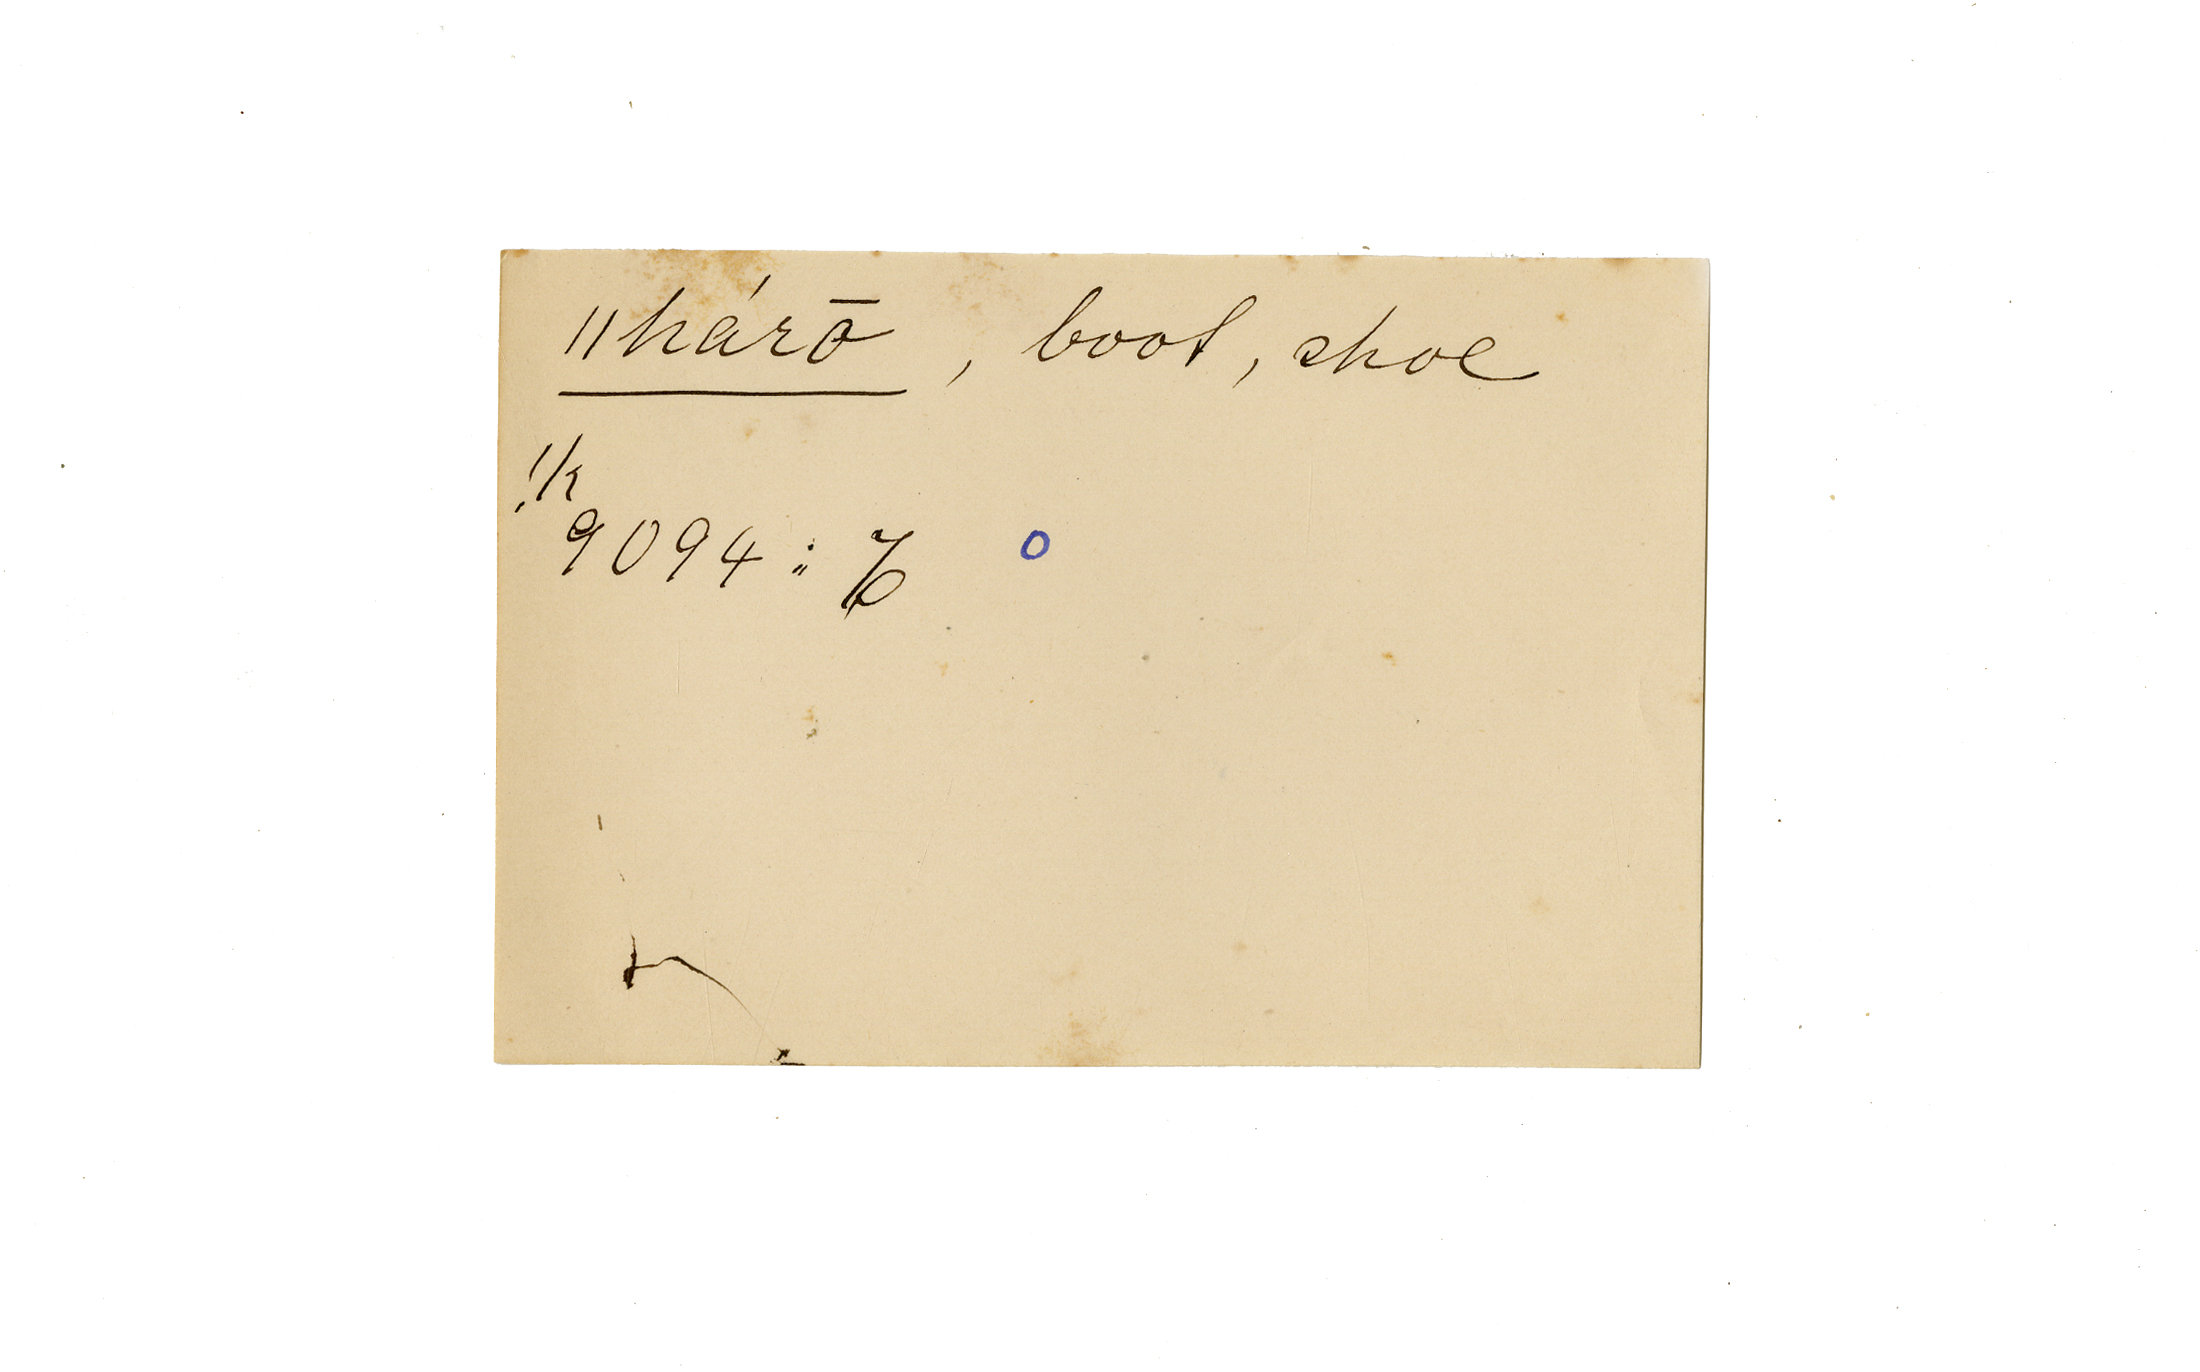 ǁhárō, boot, shoe
!k
9094:
o